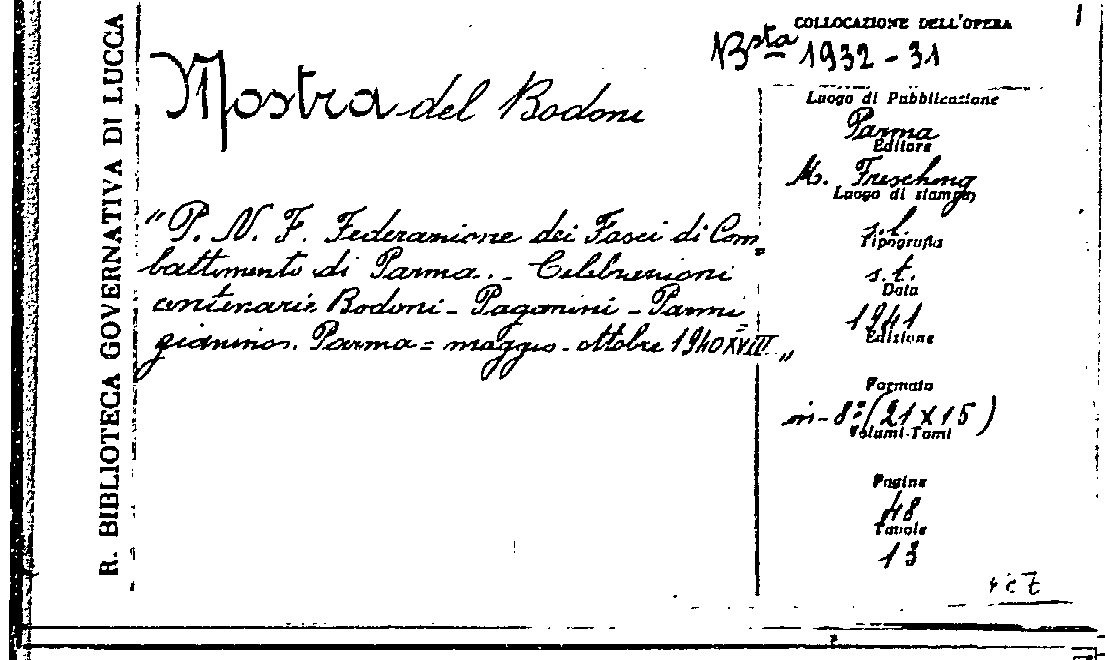 R. BIBLIOTECA GOVERNATIVA DI LUCCA
COLLOCAZIONE DELL'OPERA
Bsta 1932-31
Mostra del Bodoni
"P. N. F. Federazione dei Fasci di Com
battimento di Parma. - Celebrazioni
centenarie Bodoni - Paganini - Parmi=
gianino. Parma = maggio - ottobre 1940 XVIII"
Luogo di Pubblicazione
Parma
Editore
M. Fresching
Luogo di stampa
s.l.
Tipografia
s.t.
Data
1941
Edizione
Formato
in-8º (21x15)
Volumi-Tomi
Pagine
48
Tavole
13